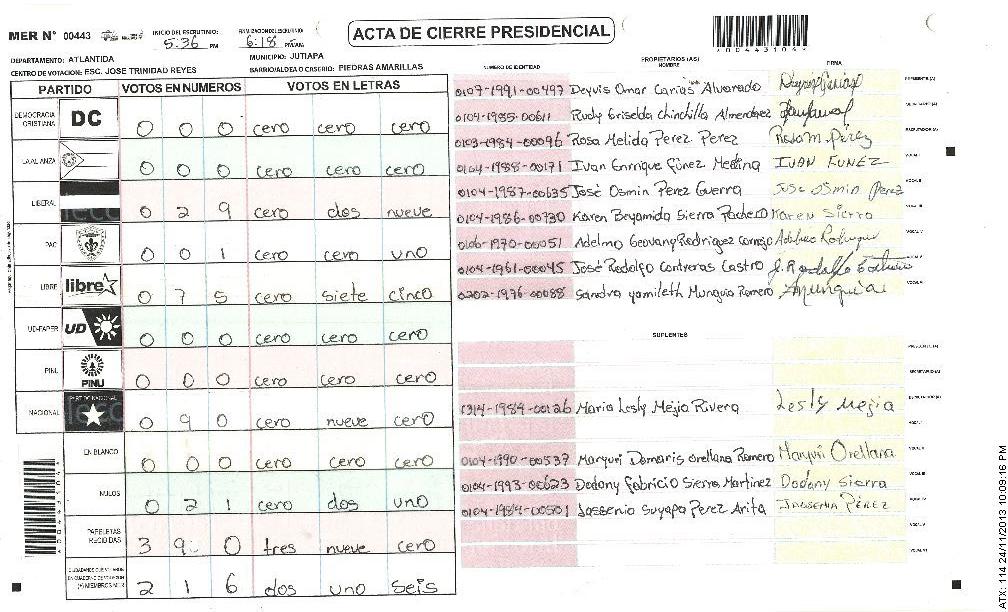 MER N° 00443
INICIO DEL ESCRUTINIO: 5:36 PM
FINALIZACION DEL ESCRUTINIO: 6:18 PM/AM
ACTA DE CIERRE PRESIDENCIAL
DEPARTAMENTO: ATLANTIDA
MUNICIPIO: JUTIAPA
CENTRO DE VOTACION: ESC. JOSE TRINIDAD REYES
BARRIO/ALDEA O CASERIO: PIEDRAS AMARILLAS
PARTIDO VOTOS EN NUMEROS VOTOS EN LETRAS
DEMOCRACIA CRISTIANA DC 0 0 0 cero cero cero
LA ALIANZA 0 0 0 cero cero cero
LIBERAL 0 2 9 cero dos nueve
PAC 0 0 1 cero cero uno
LIBRE libre 0 7 5 cero siete cinco
UD-FAPER UD 0 0 0 cero cero cero
PINU PINU 0 0 0 cero cero cero
NACIONAL PARTIDO NACIONAL 0 9 0 cero nueve cero
EN BLANCO 0 0 0 cero cero cero
NULOS 0 2 1 cero dos uno
PAPELETAS RECIBIDAS 3 9 0 tres nueve cero
CIUDADANOS QUE VOTARON EN CUADERNO DE VOTACION (+) MIEMBROS MER 2 1 6 dos uno seis
PROPIETARIOS (AS)
NUMERO DE IDENTIDAD NOMBRE FIRMA
0107-1991-00497 Deyvis Omar Carias Alvarado PRESIDENTE (A)
0104-1985-00611 Rudy Griselda Chinchilla Almendarez SECRETARIO (A)
0103-1984-00096 Rosa Melida Perez Perez Rosa M. Pérez ESCRUTADOR (A)
0104-1988-00171 Ivan Enrrique Funez Medina IVAN FUNEZ VOCAL I
0104-1987-00635 José Osmin Perez Guerra José Osmin Perez VOCAL II
0104-1986-00730 Karen Beyamida Sierra Pacheco Karen Sierra VOCAL III
0106-1970-00051 Adelmo Geovany Rodriguez Cornejo VOCAL IV
0104-1961-00045 José Rodolfo Contreras Castro VOCAL V
0202-1976-00088 Sandra yamileth Munguia Romero Munguia VOCAL VI
SUPLENTES
PRESIDENTE (A)
SECRETARIO (A)
1314-1984-00126 Maria Lesly Mejia Rivera Lesly Mejia ESCRUTADOR (A)
VOCAL I
0104-1990-00537 Maryuri Damaris Orellana Romero Maryuri Orellana VOCAL II
0104-1993-00623 Dodany Fabricio Sierra Martinez Dodany Sierra VOCAL III
0104-1984-00501 Jassenia Suyapa Perez Arita JASSENIA PÉREZ VOCAL IV
VOCAL V
VOCAL VI
ATX: 114 24/11/2013 10:09:16 PM